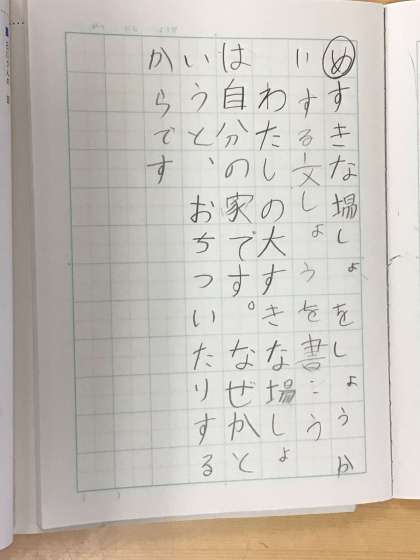 めすきな場しょをしょうか
いする文しょうを書こう
わたしの大すきな場しょ
は自分の家です。なぜかと
いうと、おちついたりする
からです